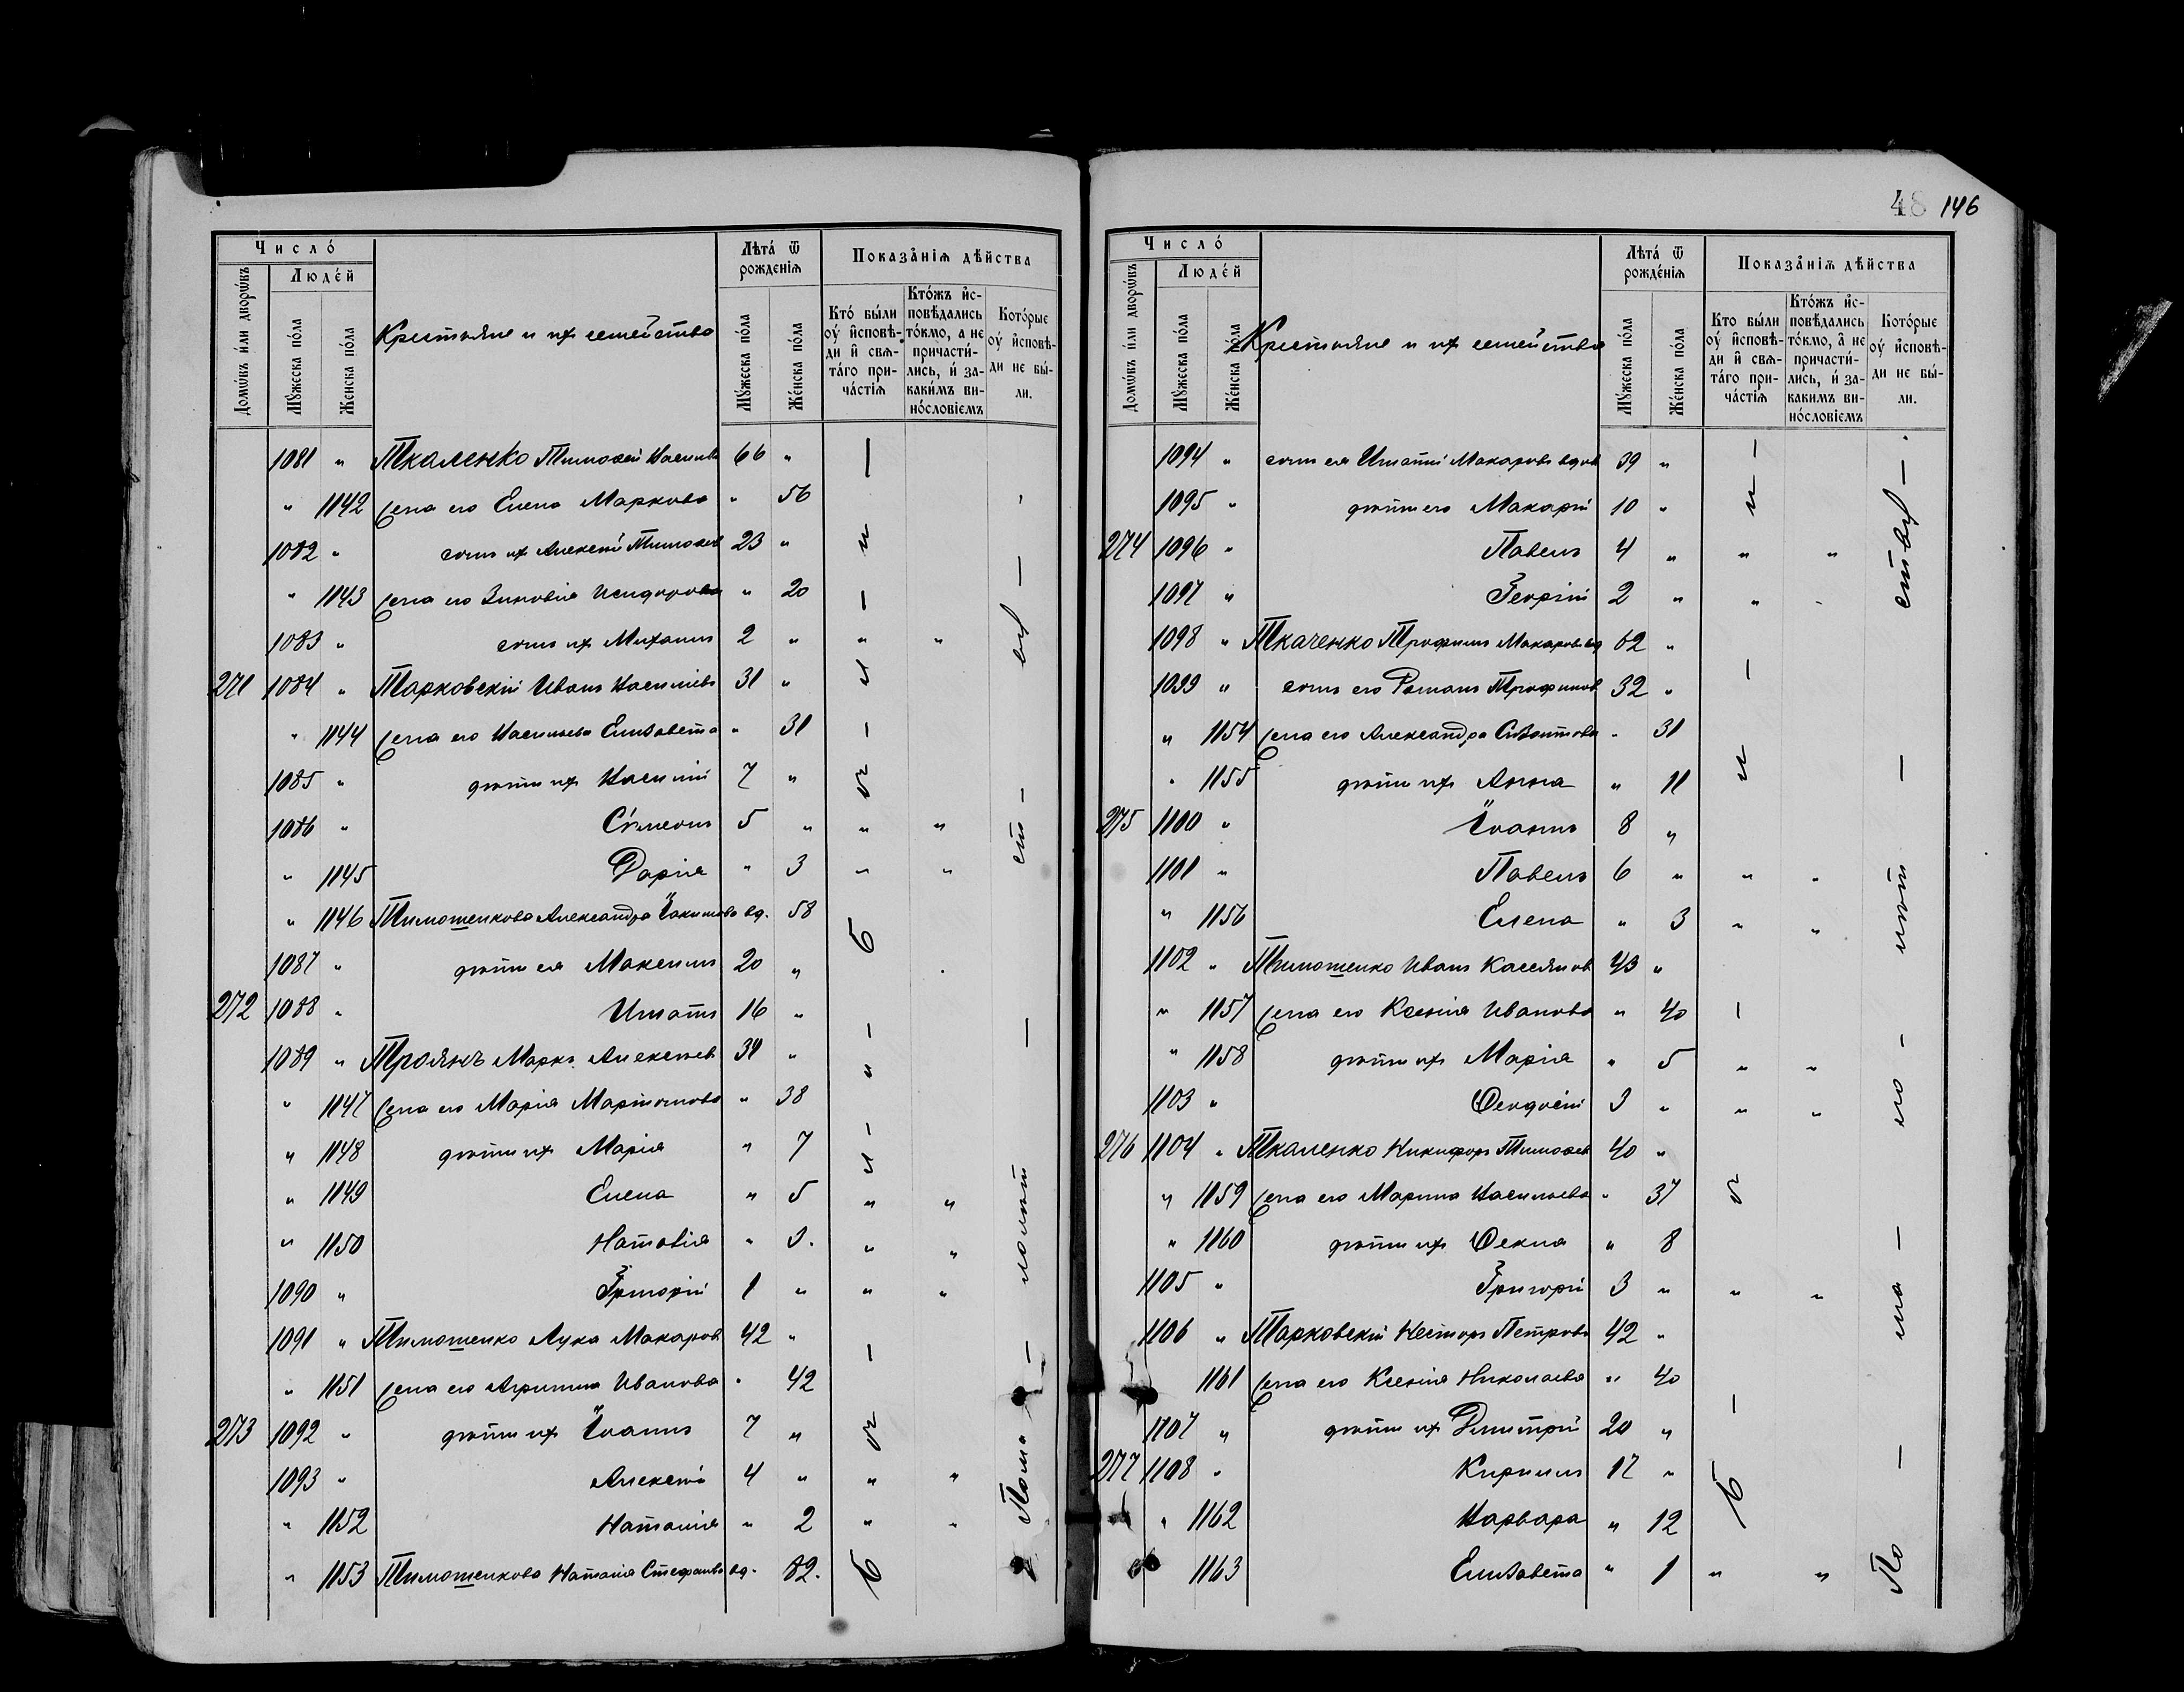 Число́
Людéй
Домѡ́въ и҆́ли дворѡ́въ
Мꙋ́жеска по́ла
Же́нска по́ла
Крестьяне и ихъ семейства
Лѣта́ ѿ рожде́нїѧ
Мꙋ́жеска по́ла
Же́нска по́ла
Показа̑нїѧ дѣ́йства
Кто́ бы́ли оу҆ и҆сповѣ́ди и҆ свѧта́го прича́стїѧ
Кто́жъ и҆сповѣ́дались то́кмо, а не причасти́лись, и҆ за каки́мъ вино́словїемъ
Кото́рые оу҆ и҆сповѣ́ди не бы́ли.
1081 " Ткаленко Тимофей Васильев 66 "
" 1142 жена его Елена Маркова " 56
1082 " сынъ их Алексей Тимофеев 23 "
" 1143 жена его Зиновія Исидорова " 20
1083 " сынъ их Михаилъ 2 " " "
271 1084 " Тарковскій Иванъ Васильевъ 31 "
" 1144 жена его Васильева Елизавета " 31
1085 " дѣти ихъ Василій 7 "
1086 " Сѵмеонъ 5 " " "
" 1145 Дарія " 3 " "
" 1146 Тимошенкова Александра Іакимова вд. 58
1087 " дѣти ея Максимъ 20 "
272 1088 " Игнатъ 16 "
1089 " Троянъ Маркъ Алексѣев 34 "
" 1147 жена его Марія Мартынова " 38
" 1148 дѣти ихъ Марія " 7
" 1149 Елена " 5 " "
" 1150 Наталія " 3. " "
1090 " Григорій 1 " " "
1091 " Тимошенко Лука Макаров 42 "
" 1151 жена его Агрипина Иванова " 42
273 1092 " дѣти ихъ Іоаннъ 7 "
1093 " Алексѣй 4 " " "
" 1152 Наталія " 2 " "
" 1153 Тимошенкова Наталія Стефанова вд. 82.
48 146
Число́
Людéй
Домѡ́въ и҆́ли дворѡ́въ
Мꙋ́жеска по́ла
Же́нска по́ла
Крестьяне и ихъ семейства
Лѣта́ ѿ рожде́нїѧ
Мꙋ́жеска по́ла
Же́нска по́ла
Показа̑нїѧ дѣ́йства
Кто бы́ли оу҆ и҆сповѣ́ди и҆ свѧта́го прича́стїѧ
Кто́жъ и҆сповѣ́дались то́кмо, а҆ не причасти́лись, и҆ за каки́мъ вино́словїемъ
Кото́рые оу҆ и҆сповѣ́ди не бы́ли.
1094 " сынъ ея Игнатій Макаровъ вдов 39 "
1095 " дѣти его Макарій 10 "
274 1096 " Павелъ 4 " " "
1097 " Георгій 2 " " "
1098 " Ткаченко Трофимъ Макаровъ вд 62 "
1099 " сынъ его Романъ Трофимов 32 "
" 1154 жена его Александра " 31
" 1155 дѣти ихъ Анна " 11
275 1100 " Іоаннъ 8 "
1101 " Павелъ 6 " " "
" 1156 Елена " 3 " "
1102 " Тимошенко Иванъ Касьянов 43 "
" 1157 жена его Ксенія Иванова " 40
" 1158 дѣти ихъ Марія " 5 " "
1103 " Ѳеодосій 3 " " "
276 1104 " Ткаленко Никифоръ Тимофеев 40 "
" 1159 жена его Марина Васильева " 37
" 1160 дѣти ихъ Ѳекла " 8
1105 " Григорій 3 " " "
1106 " Тарковскій Несторъ Петровъ 42 "
1161 жена его Ксенія Николаева " 40
1107 " дѣти их Димитрій 20 "
277 1108 " Кириллъ 17 "
" 1162 Варвара " 12
1163 Елизавета " 1 " "